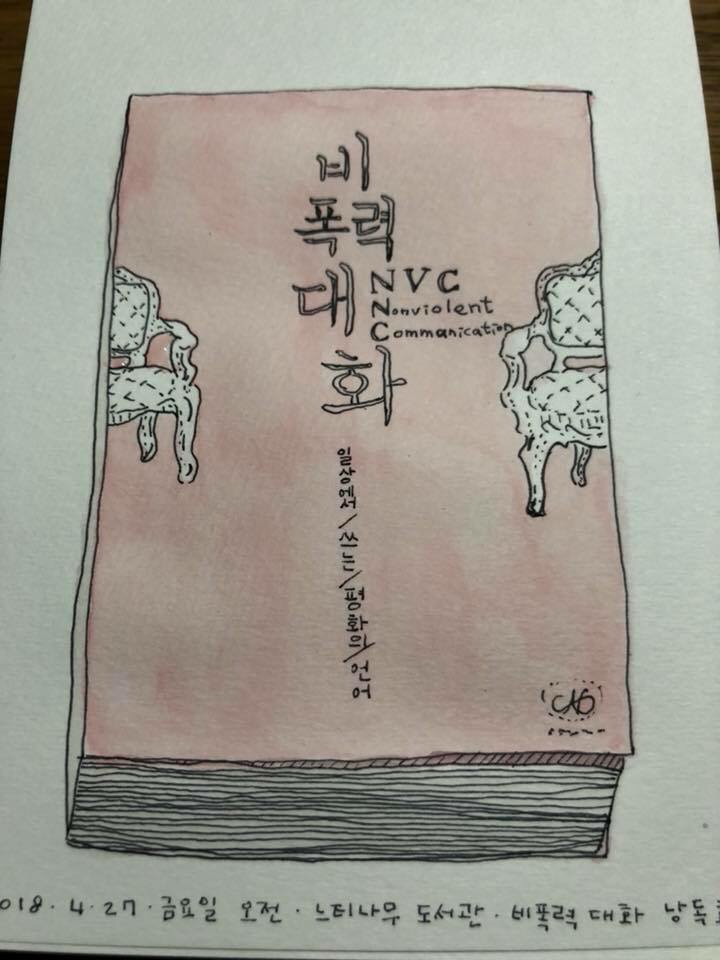 비
폭력
대
화
NVC
Nonviolent
Commanication
일상에서/쓰는/평화의/언어
018·4·27·금요일 오전·느티나무 도서관·비폭력 대화 낭독